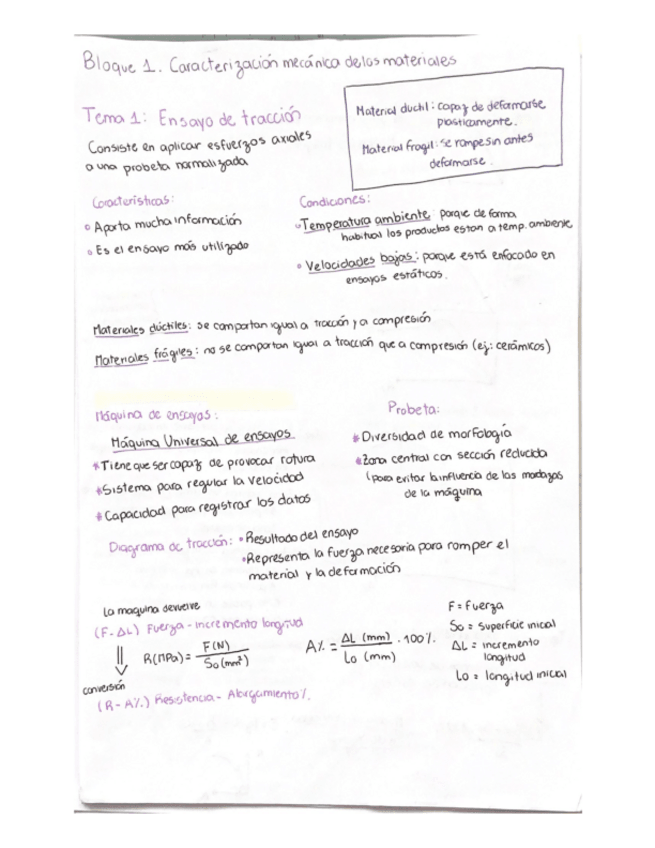 Bloque 1. Caracterización mecánica de los materiales
Tema 1: Ensayo de tracción
Consiste en aplicar esfuerzos axiales
a una probeta normalizada
Material ductil: capaz de deformarse
plasticamente.
Material fragil: se rompe sin antes
deformarse.
Características:
Aporta mucha información
Es el ensayo más utilizado
Condiciones:
Temperatura ambiente porque de forma
habitual los productos estan a temp. ambiente
Velocidades bajas: porque está enfocado en
ensayos estáticos.
Materiales dúctiles: se comportan igual a tracción y a compresión
Materiales frágiles: no se comportan igual a tracción que a compresión (ej: cerámicos)
Máquina de ensayos:
Máquina Universal de ensayos
* Tiene que ser capaz de provocar rotura
* Sistema para regular la velocidad
* Capacidad para registrar los datos
Probeta:
* Diversidad de morfología
* Zona central con sección reducida
(para evitar la influencia de las mordazas
de la máquina
Diagrama de tracción: • Resultado del ensayo
• Representa la fuerza necesaria para romper el
material y la deformación
La maquina devuelve
(F-ΔL) Fuerza - incremento longitud
⇓ R(MPa) = F(N) / So (mm²)
conversión
(R - A%) Resistencia - Alargamiento%.
A% = ΔL (mm) / Lo (mm) · 100%
F = Fuerza
So = superficie inicial
ΔL = incremento
longitud
Lo = longitud inicial